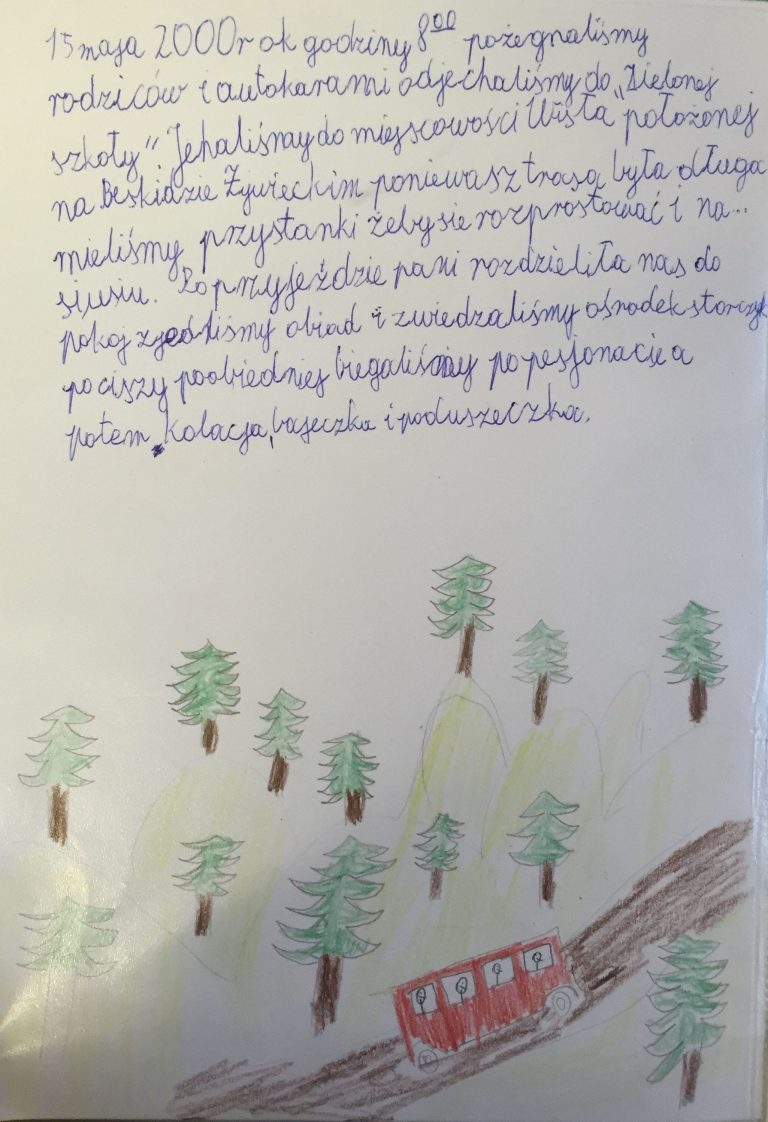 15 maja 2000r ok godziny 8⁰⁰ pożegnaliśmy
rodziców i autokarami odjechaliśmy do „Zielonej
szkoły”. Jehaliśmy do miejscowości Wisła położonej
na Beskidzie Żywieckim poniewasz trasa była długa
mieliśmy przystanki żeby sie rozprostować i na...
siusiu. Po przyjeździe pani rozdzieliła nas do
pokoj zjedliśmy obiad i zwiedzaliśmy ośrodek storczyk
po ciszy poobiedniej biegaliśmy po pesjonacie a
potem kolacja, bajeczka i poduszeczka.